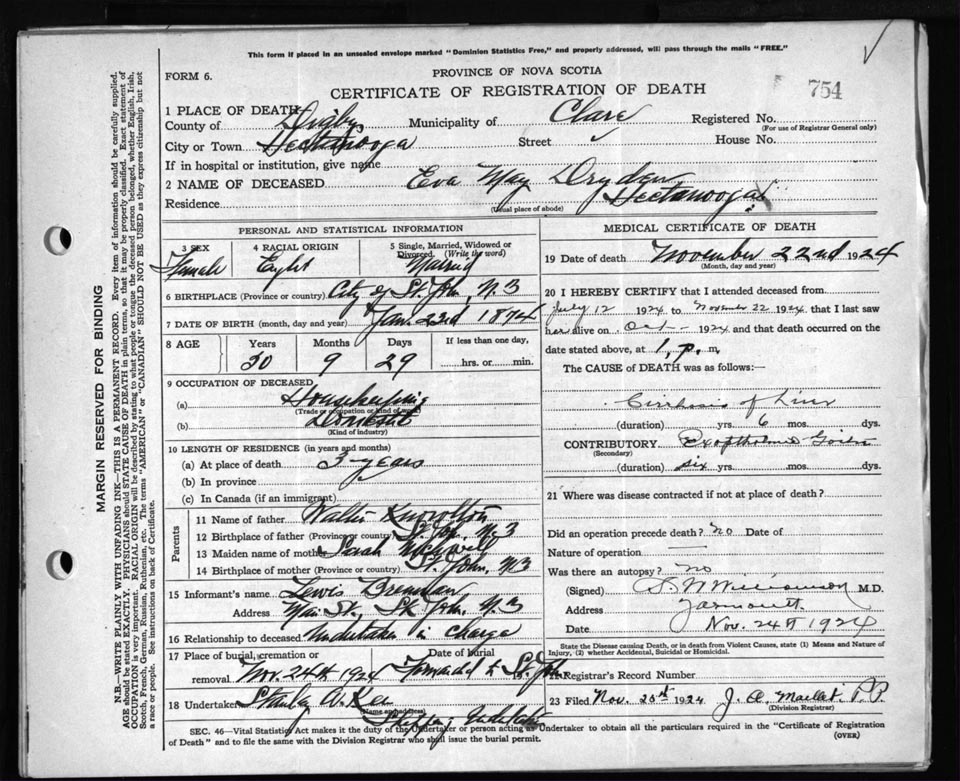 This form if placed in an unsealed envelope marked "Dominion Statistics Free," and properly addressed, will pass through the mails "FREE."
FORM 6.
PROVINCE OF NOVA SCOTIA
CERTIFICATE OF REGISTRATION OF DEATH
754
1 PLACE OF DEATH
County of Digby Municipality of Clare Registered No.
(For use of Registrar General only)
City or Town Hectanooga Street House No.
If in hospital or institution, give name
2 NAME OF DECEASED Eva May Dryden
Residence Hectanooga
(Usual place of abode)
MARGIN RESERVED FOR BINDING
N.B.—WRITE PLAINLY WITH UNFADING INK—THIS IS A PERMANENT RECORD. Every item of information should be carefully supplied.
AGE should be stated EXACTLY. PHYSICIANS should STATE CAUSE OF DEATH in plain terms, so that it may be properly classified. Exact statement of
OCCUPATION is very important. RACIAL ORIGIN will be described by stating to what people or tongue the deceased person belonged, whether English, Irish,
Scotch, French, German, Russian, Ruthenian, etc. The terms "AMERICAN" or "CANADIAN" SHOULD NOT BE USED as they express citizenship but not
a race or people. See instructions on back of Certificate.
PERSONAL AND STATISTICAL INFORMATION
3 SEX 4 RACIAL ORIGIN 5 Single, Married, Widowed or
Divorced. (Write the word)
Female Married
6 BIRTHPLACE (Province or country) City of St. John, N.B
7 DATE OF BIRTH (month, day and year) Jan. 23rd 1874
8 AGE Years Months Days If less than one day,
50 9 29 hrs. or min.
9 OCCUPATION OF DECEASED
(a) Housekeeping
(Trade or occupation or kind of work)
(b) Domestic
(Kind of industry)
10 LENGTH OF RESIDENCE (in years and months)
(a) At place of death 3-years
(b) In province
(c) In Canada (if an immigrant)
Parents
11 Name of father Walter Knowlton
12 Birthplace of father (Province or country) St. John, N.B
13 Maiden name of mother Sarah
14 Birthplace of mother (Province or country) St. John, NB
15 Informant's name Lewis Brennan
Address Main St., St. John, N.B
16 Relationship to deceased Undertaker in charge
17 Place of burial, cremation or Date of burial
removal Nov. 24th 1924 Forwarded to St. John
18 Undertaker Stanley W.
(Name and address)
Undertaker
MEDICAL CERTIFICATE OF DEATH
19 Date of death November 22nd 1924
(Month, day and year)
20 I HEREBY CERTIFY that I attended deceased from
July 12 1924 to November 22 1924 that I last saw
her alive on Oct — 1924 and that death occurred on
the date stated above, at 1, p. m.
The CAUSE of DEATH was as follows:—
Cirrhosis of Liver
(duration) yrs. 6 mos. dys.
CONTRIBUTORY Exopthalmic Goitre
(Secondary)
(duration) six yrs. mos. dys.
21 Where was disease contracted if not at place of death?
Did an operation precede death? no Date of
Nature of operation —
Was there an autopsy? no
(Signed) Williamson M.D.
Address Yarmouth
Date Nov. 24th 1924
State the Disease causing Death, or in death from Violent Causes, state (1) Means and Nature of
Injury, (2) whether Accidental, Suicidal or Homicidal.
22 Registrar's Record Number
23 Filed Nov. 25th 1924 J. A. Maillet P.P.
(Division Registrar)
SEC. 46—Vital Statistics Act makes it the duty of the Undertaker or person acting as Undertaker to obtain all the particulars required in the "Certificate of Registration
of Death" and to file the same with the Division Registrar who shall issue the burial permit.
(OVER)